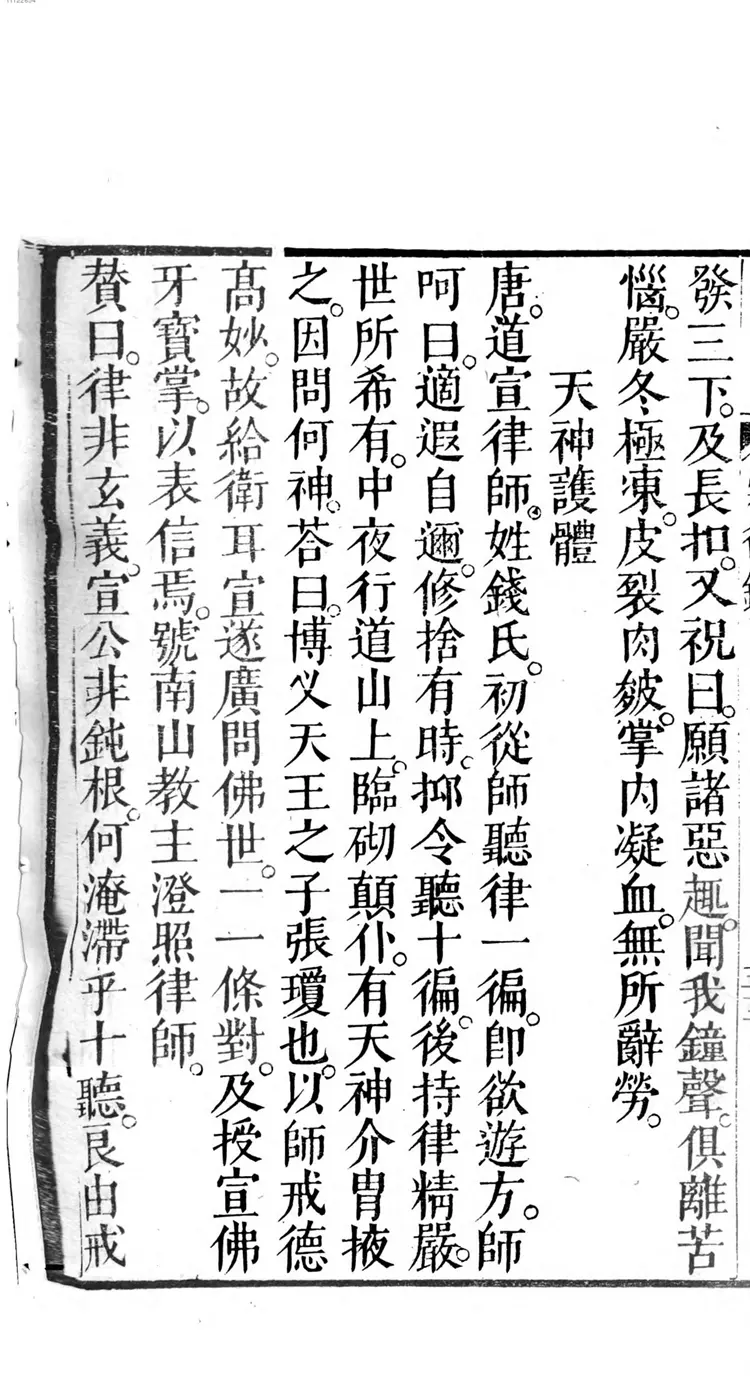 發三下。及長扣。又祝曰。願諸惡趣。聞我鐘聲。俱離苦
惱。嚴冬極凍。皮裂肉皴。掌內凝血。無所辭勞。
天神護體
唐。道宣律師。姓錢氏。初從師聽律一徧。卽欲遊方。師
呵曰。適遐自邇。修捨有時。抑令聽十徧。後持律精嚴。
世所希有。中夜行道山上。臨砌顛仆。有天神介胄掖
之。因問何神。荅曰。博义天王之子張瓊也。以師戒德
高妙。故給衛耳宣遂廣問佛世。一一條對。及授宣佛
牙寶掌。以表信焉。號南山教主澄照律師。
贊曰。律非玄義。宣公非鈍根。何淹滯乎十聽。良由戒